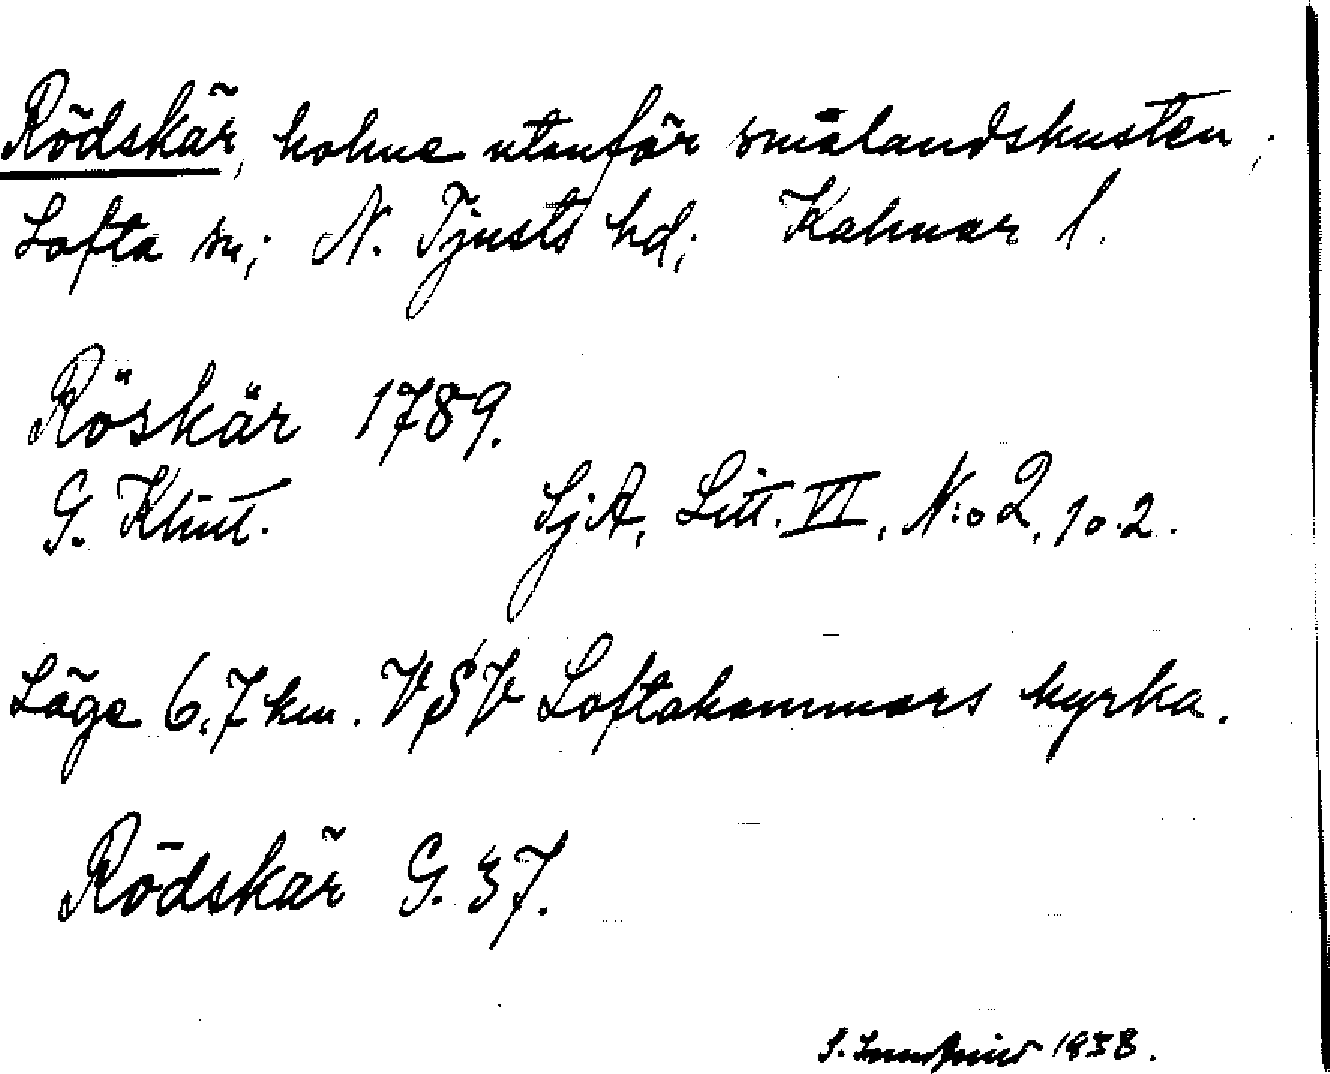 Rödskär, holme utanför smålandskusten;
Lofta sn; N. Tjusts hd; Kalmar l.
Röskär 1789.
G. Klint. SjA, Litt. VI, N:o 2, 10.2.
Läge 6,7 km. VSV Loftahammars kyrka.
Rödskär G. 37.
S. 1938.